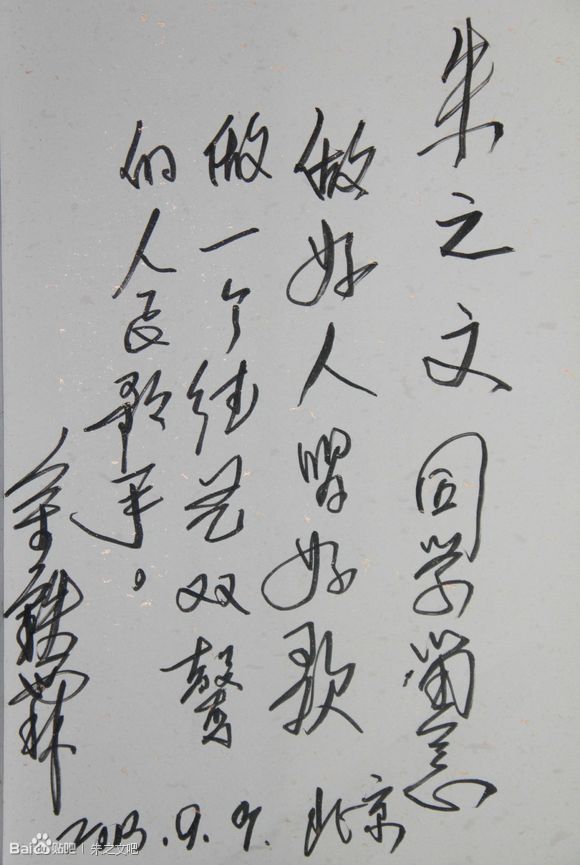 朱之文同学留念
做好人唱好歌
做一个德艺双馨
的人民歌手。
金铁霖
2013.9.9. 北京
Bai du 贴吧 | 朱之文吧